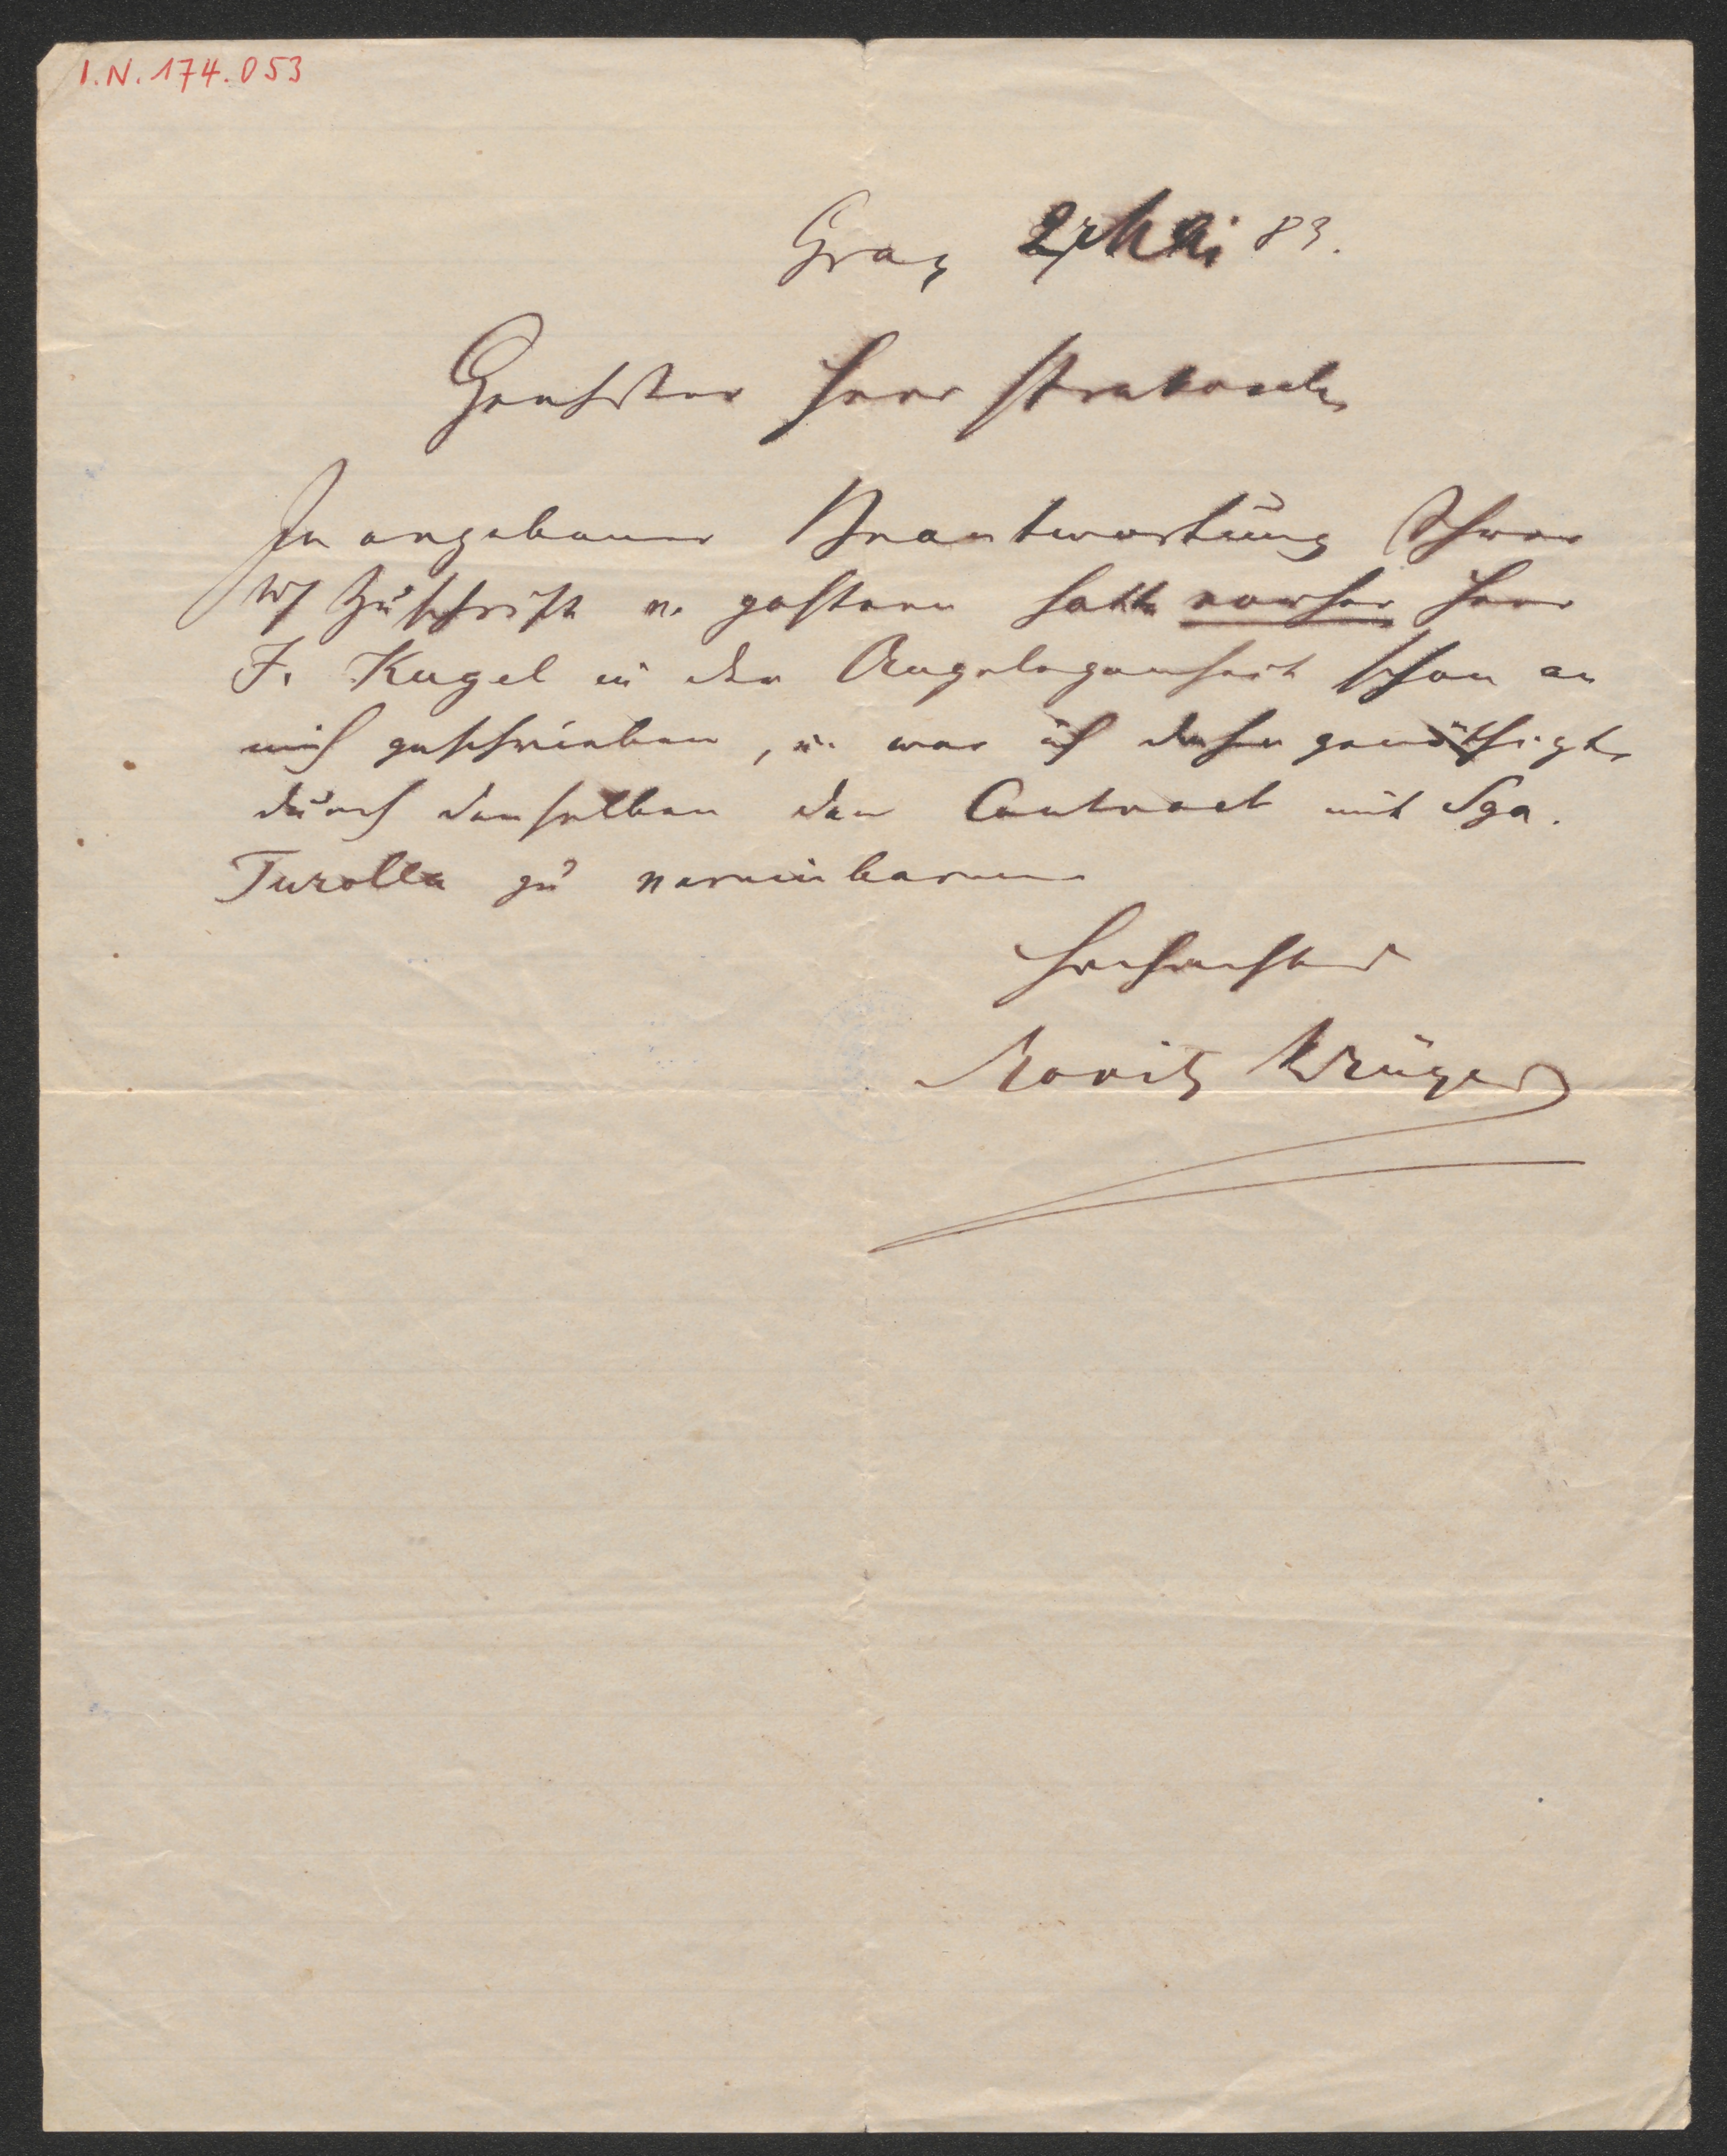 I.N. 174.053
Graz 27 Mai 83.
Geehrter Herr Strakosch
In ergebener Beantwortung Ihrer
W/ Zuschrift v. gestern hatte vorher Herr
F. Kugel in der Angelegenheit schon an
mich geschrieben, u. war ich daher genöthigt
durch denselben den Contract mit Sga.
Turolla zu vereinbaren
Hochachtend
Moritz Krüger